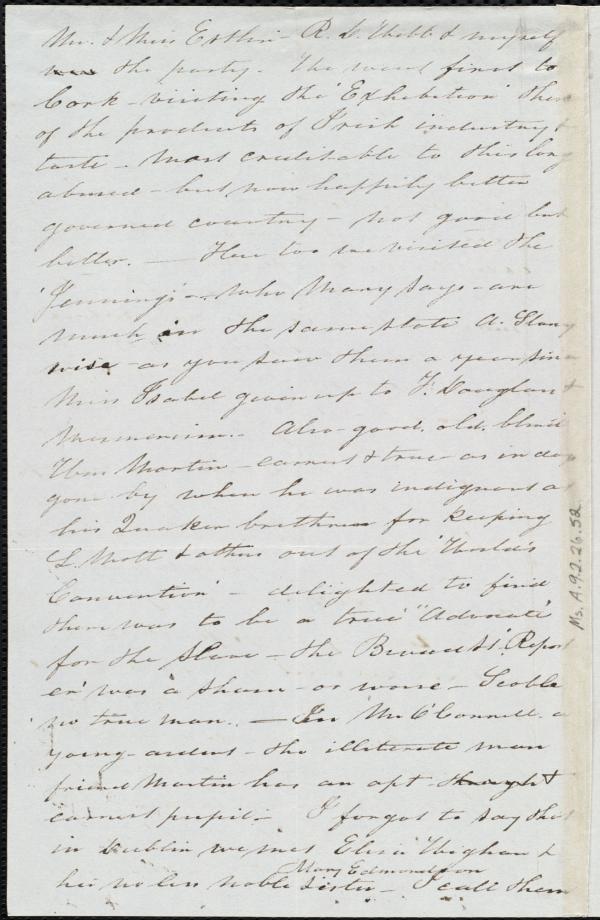 Mr. & Miss Estlin - R. D. Webb & myself
the party - We went first to
Cork - visiting the 'Exhibition' there
of the products of Irish industry &
taste - most creditable to this long
abused - but now happily better
governed country - not good but
better. — Here too we visited the
'Jennings' - who Mary says - are
much in the same state A. Slavery
wise - as you saw them a year since
Miss Isabel given up to F. Douglass &
Mesmerism. - Also good, old, blind
Wm Martin - earnest & true - as in days
gone by when he was indignant at
his Quaker brethren for keeping
L. Mott & others out of the 'World's
Convention' - delighted to find
there was to be a true "Advocate"
for the Slave - the Broad St. 'Report
er' was a sham - or worse - Scoble
no true man. — In Mr. O'Connell a
young - ardent - tho illiterate man
friend Martin has an apt &
earnest pupil - I forgot to say that
in Dublin we met Eliza Wigham &
Mary Edmondson
her no less noble Sister - I call them
Ms. A.9.2.26.52